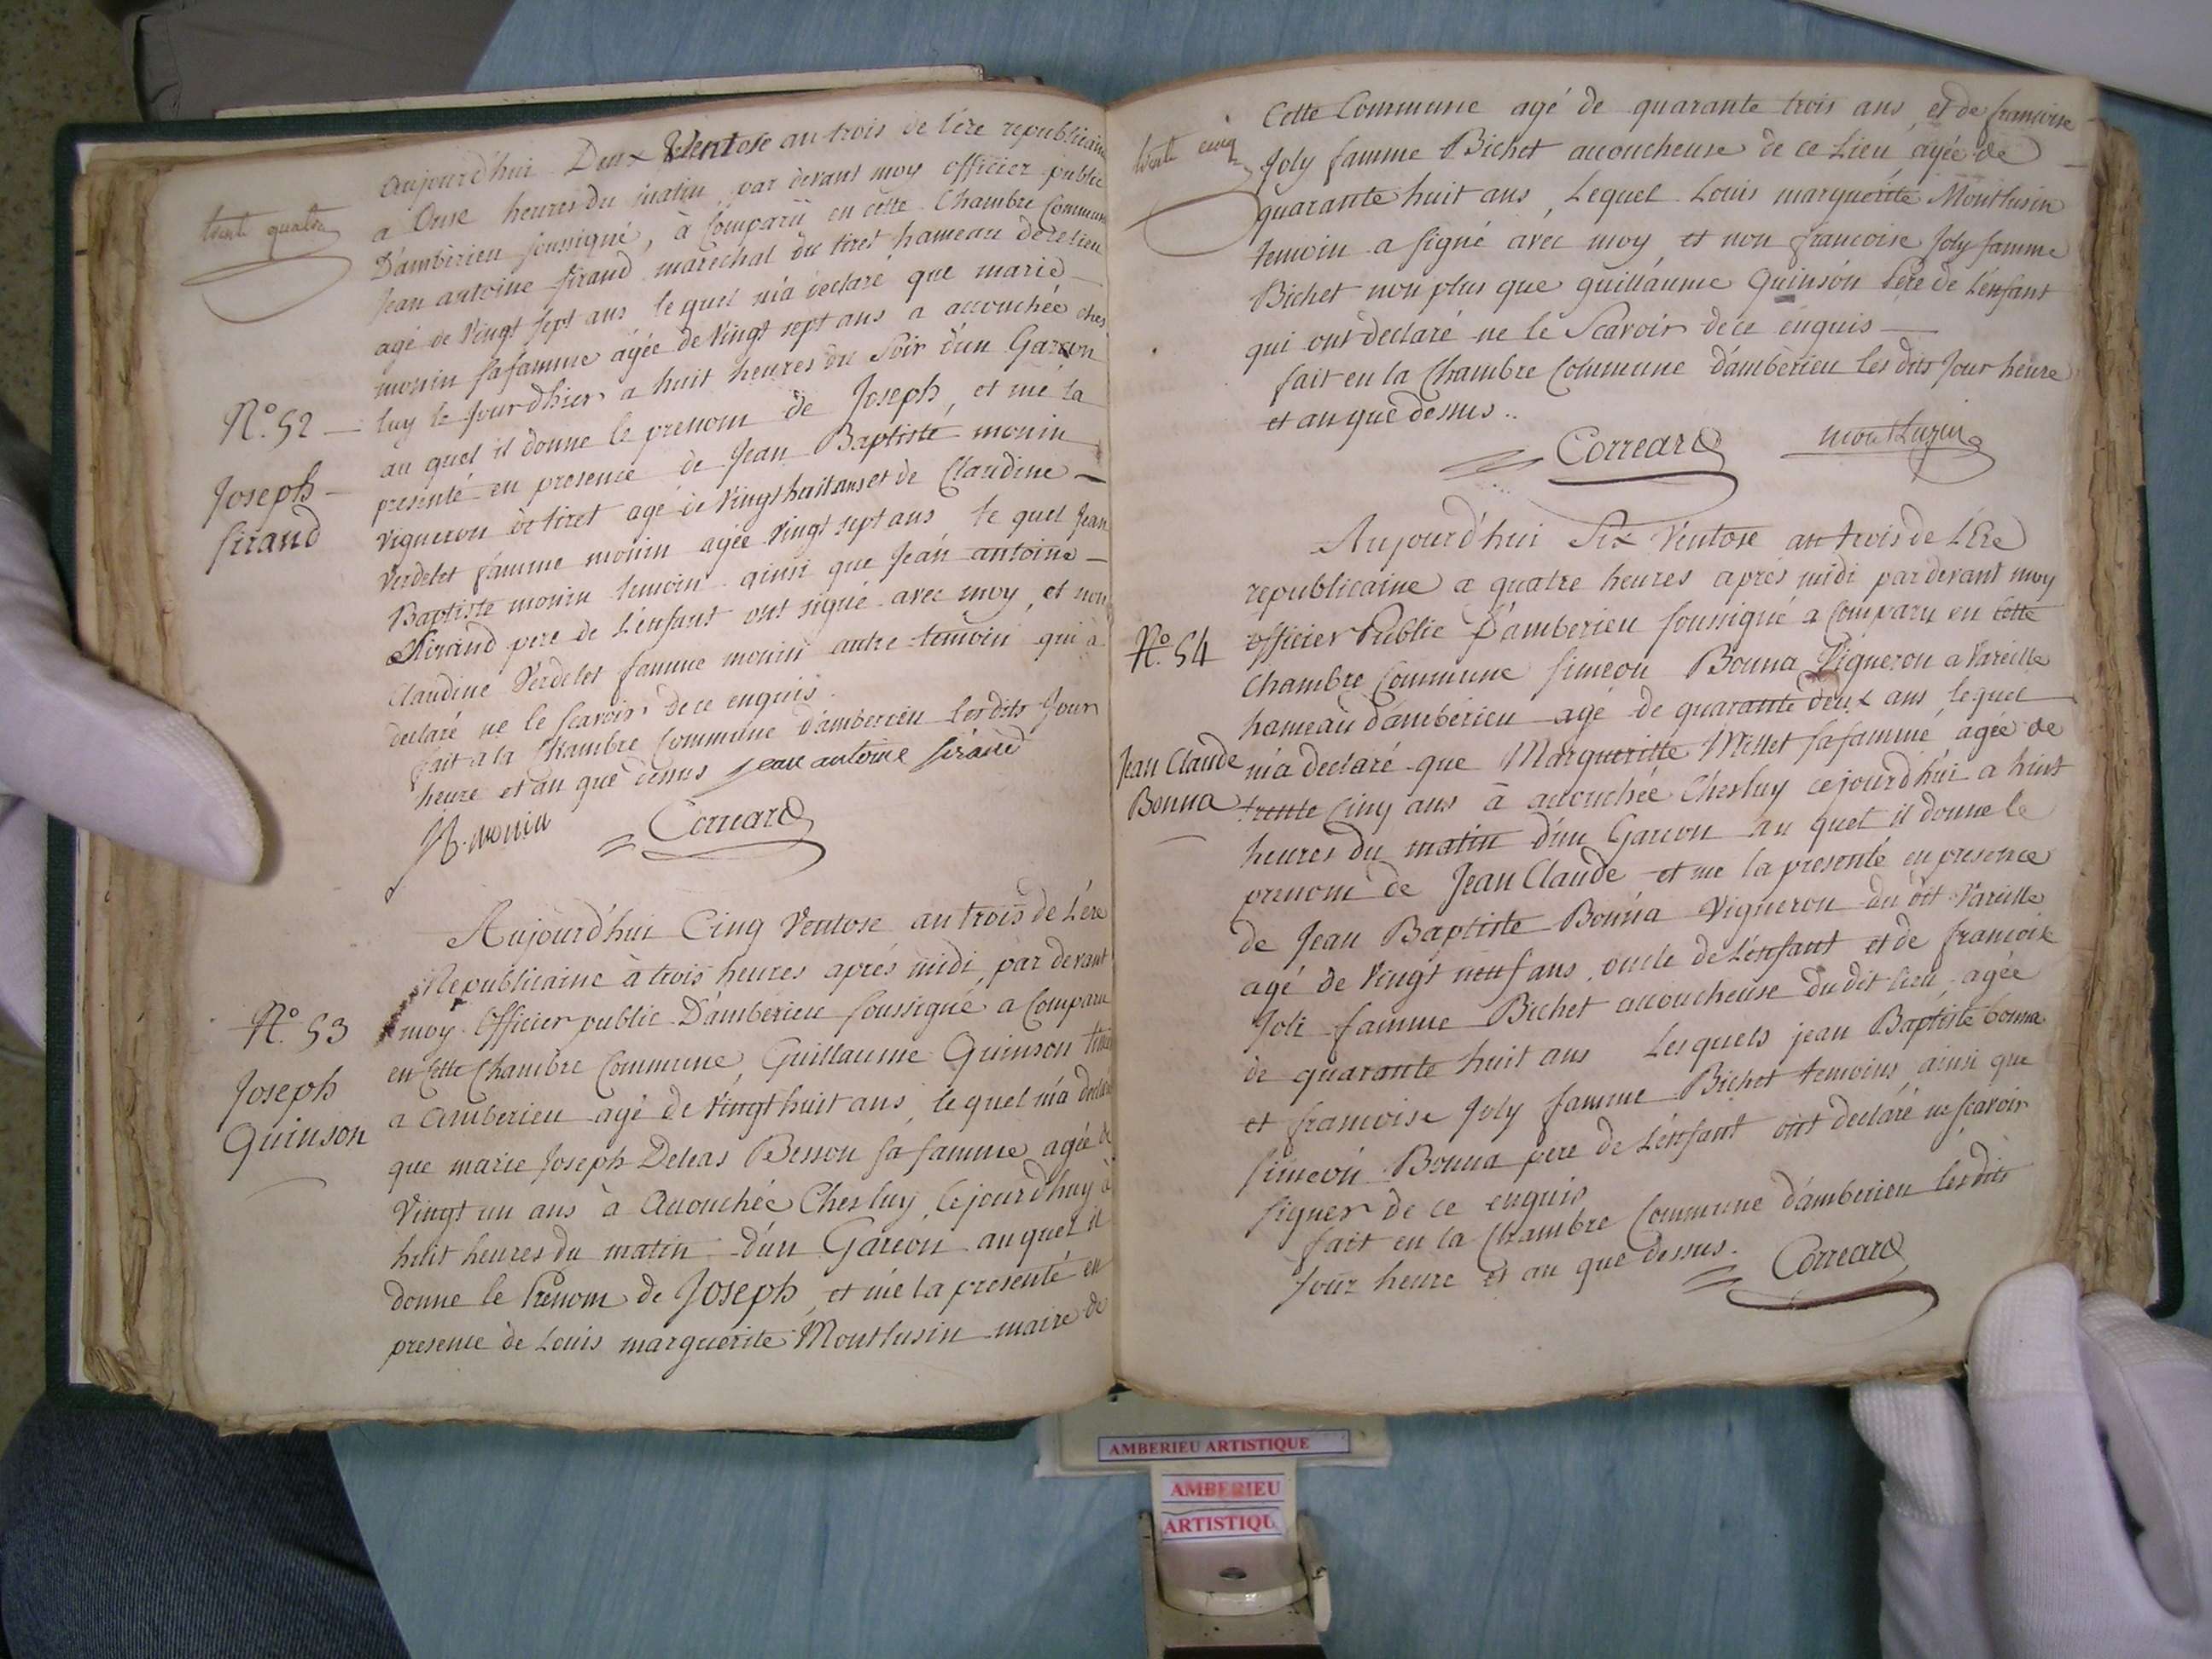 trente quatre
Aujourd'hui Deux Ventose an trois de l'ére republicaine
a Onse heures du matin, par devant moy officier public
D'amberieu soussigné, à Comparü en cette Chambre Commune
Jean antoine sirand maréchal du tiret hameau de ce lieu
agé de Vingt sept ans lequel m'a déclaré que marie
monin sa famme agée de Vingt sept ans a accouchée ches
luy le jour d'hier a huit heures du Soir d'un Garcon
au quel il donne le prenom de Joseph, et me la
presenté en presence de Jean Baptiste monin
Vigneron de tiret agé de Vingt huit ans et de Claudine
Verdelet famme monin agée Vingt sept ans le quel Jean
Baptiste monin temoin ainsi que Jean antoine
Sirand pere de L'enfant ont signé avec moy, et non
Claudine Verdelet famme monin autre temoin qui à
declaré ne le scavoir de ce enquis.
fait a la Chambre Commune d'amberieu les dits Jour
heure et an que dessus jean antoine sirand
monin Correard
N.º 52
Joseph
sirand
Aujourd'hui Cinq Ventose an trois de L'ére
Republicaine à trois heures aprés midi, par devant
moy Officier public D'amberieu soussigné a Comparu
en Cette Chambre Commune, Guillaume Quinson
a amberieu agé de Vingt huit ans, le quel m'a declaré
que marie Joseph Deleas Besson sa famme agée de
Vingt un ans à Acouchée Ches luy, ce jourd'huy à
huit heures du matin d'un Garcon au quel il
donne le Prenom de Joseph, et me la presenté en
presence de Louis marguerite Montlusin maire de
N.º 53
Joseph
Quinson
trente cinq
Cette Commune agé de quarante trois ans, et de francoise
Joly famme Bichet acoucheuse de ce Lieu, agée de
quarante huit ans, Lequel Louis marguerite Montlusin
temoin a signé avec moy, et non francoise Joly famme
Bichet non plus que guillaume Quinson Pere de L'enfant
qui ont declaré ne le Scavoir de ce enquis
fait en la Chambre Commune d'amberieu les dits Jour heure
et an que dessus..
Correard montluzin
Aujourd'hui Six Ventose an trois de L'Ere
republicaine a quatre heures apres midi par devant moy
officier Public D'amberieu soussigné a Comparu en Cette
Chambre Commune simeon Bonna Vigneron a Vareille
hameau d'amberieu agé de quarante deux ans, lequel
m'a declaré que Margueritte Millet sa famme agée de
trente Cinq ans à acouchée Ches luy ce jourd'hui a huit
heures du matin d'un Garcon au quel il donne le
prenom de Jean Claude et me la presenté en presence
de Jean Baptiste Bonna Vigneron du dit Vareille
agé de Vingt neuf ans, oncle de L'enfant et de francoise
Joli famme Bichet acoucheuse du dit lieu agée
de quarante huit ans Lesquels jean Baptiste bonna
et francoise Joly famme Bichet temoins, ainsi que
simeon Bonna pere de L'enfant ont declaré ne scavoir
signer de ce enquis
fait en la Chambre Commune d'amberieu les dits
Jour heure et an que dessus. Correard
N.º 54
Jean Claude
Bonna
AMBERIEU ARTISTIQUE
AMBERIEU
ARTISTIQU